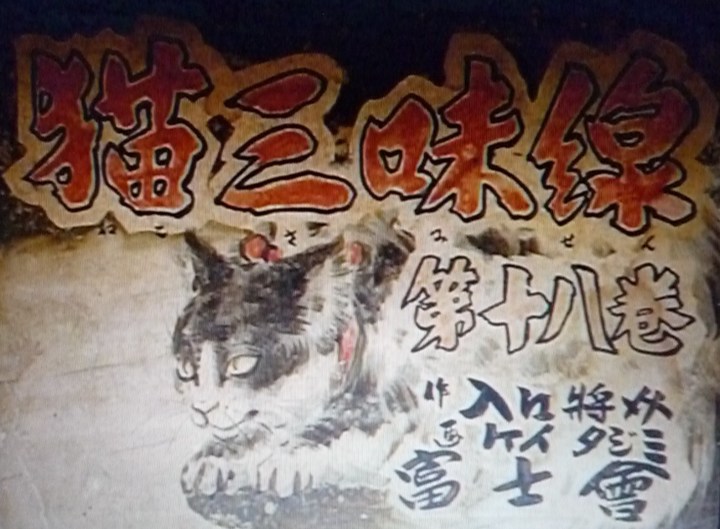 猫三味線
ねこ さ み せん
第十八巻
作 入口將
画 ケイタジミ
富士會